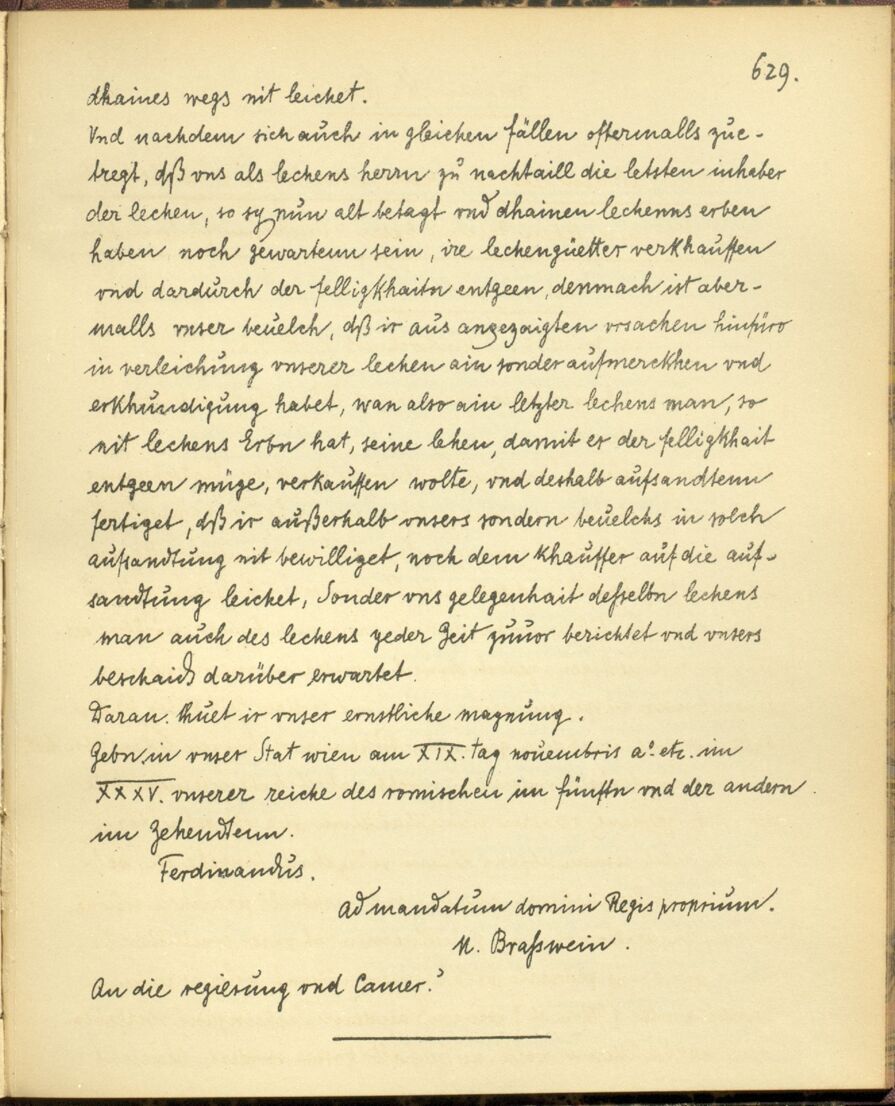 629.
dhaines wegs nit leichet.
Vnd nachdem sich auch in gleichen fällen oftermalls zue-
tregt, dß vns als lechens herrn zu nachtaill die letsten inhaber
der lechen, so sy nun alt betagt vnd dhainen lechenns erben
haben noch gewartenn sein, ire lechengüetter verkhauffen
vnd dardurch der felligkhaitn entgeen, demnach ist aber-
malls vnser beuelch, dß ir aus angezaigten vrsachen hinfüro
in verleichung vnserer lechen ain sonder aufmerckhen vnd
erkhundigung habet, wan also ain letzter lechens man, so
nit lechens Erbn hat, seine lehen, damit er der felligkhait
entgeen müge, verkauffen wolte, vnd deshalb aufsandtenn
fertiget, dß ir außerhalb vnsers sondern beuelchs in solch
aufsandtung nit bewilliget, noch dem khauffer auf die auf-
sandtung leichet, Sonder vns gelegenhait desselbn lechens
man auch des lechens yeder Zeit zuuor berichtet vnd vnsers
beschaids darüber erwartet.
Daran thuet ir vnser ernstliche maynung.
Gebn in vnser Stat wien am XIX. tag nouembris aº. etc. im
XXXV. vnserer reiche des romischen im fünfftn vnd der andern
im Zehendtenn.
Ferdinandus.
Ad mandatum domini Regis proprium.
N. Braßwein.
An die regierung vnd Camer.